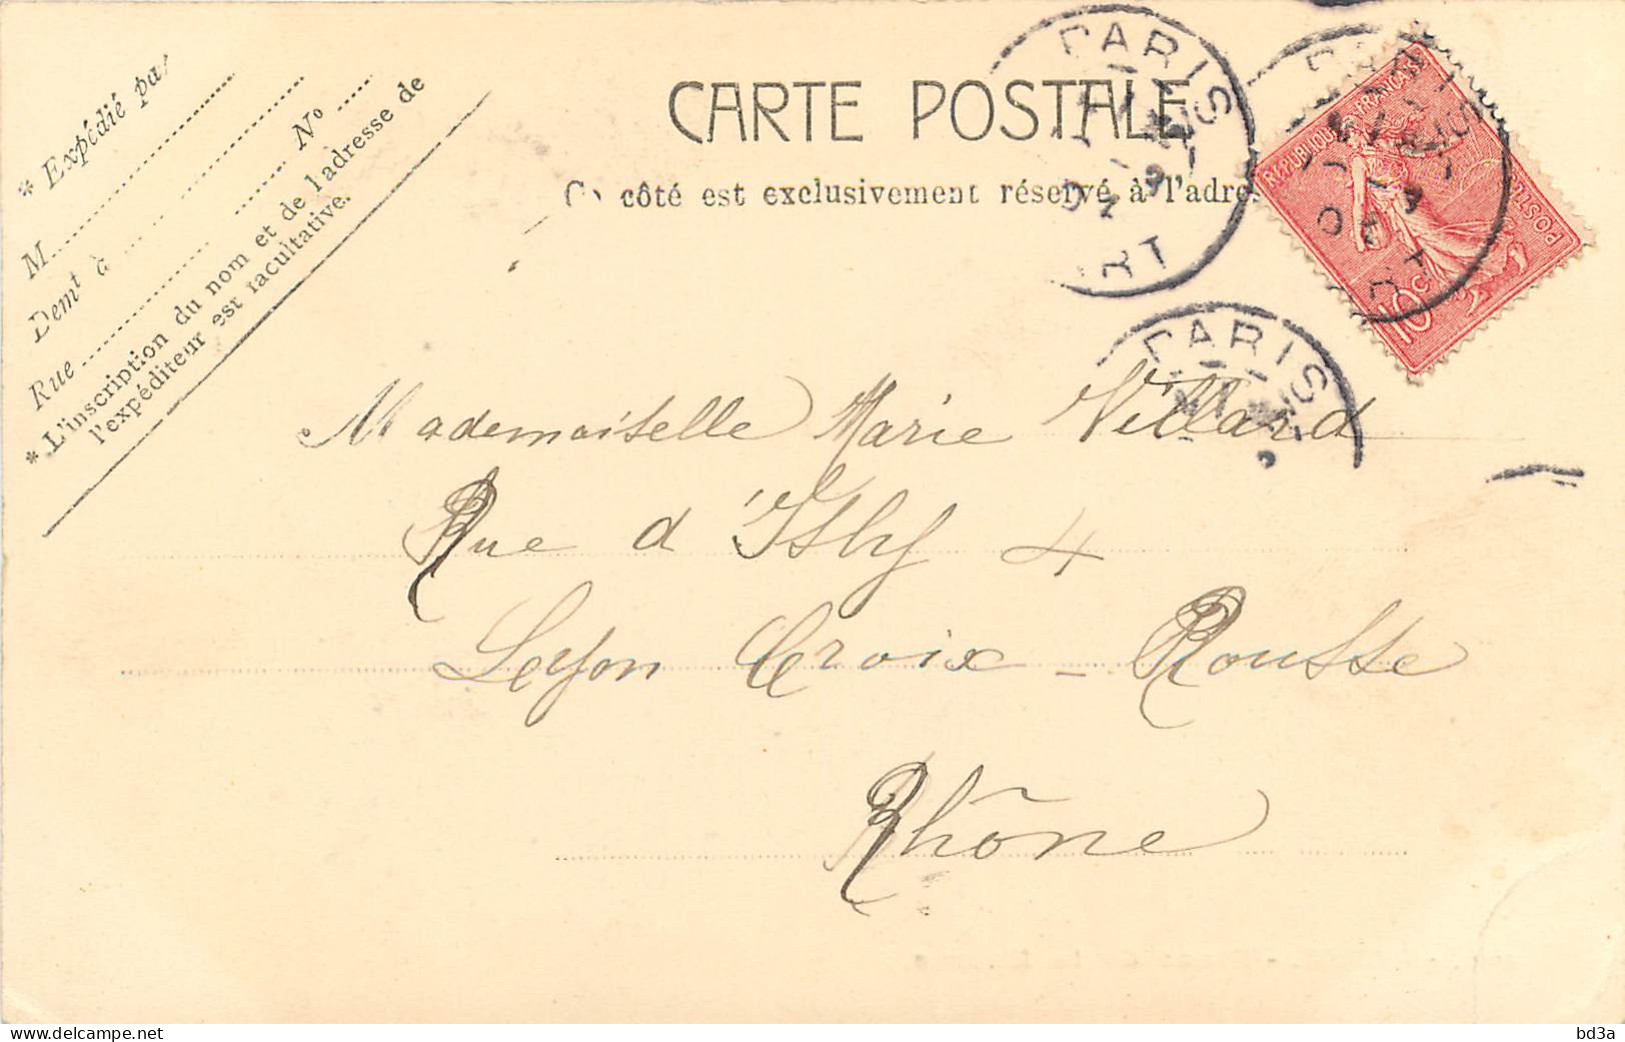 CARTE POSTALE
Ce côté est exclusivement réservé à l'adres
* Expédié pa
M
Demt à
Rue
No
* L'inscription du nom et de l'adresse de
l'expéditeur est facultative.
PARIS
PARIS
PARIS
REPUBLIQUE FRANÇAISE
POSTES
10c
Mademoiselle Marie Villard
Rue d'Isly 4
Lyon Croix-Rousse
Rhône
delcampe.net
bd3a